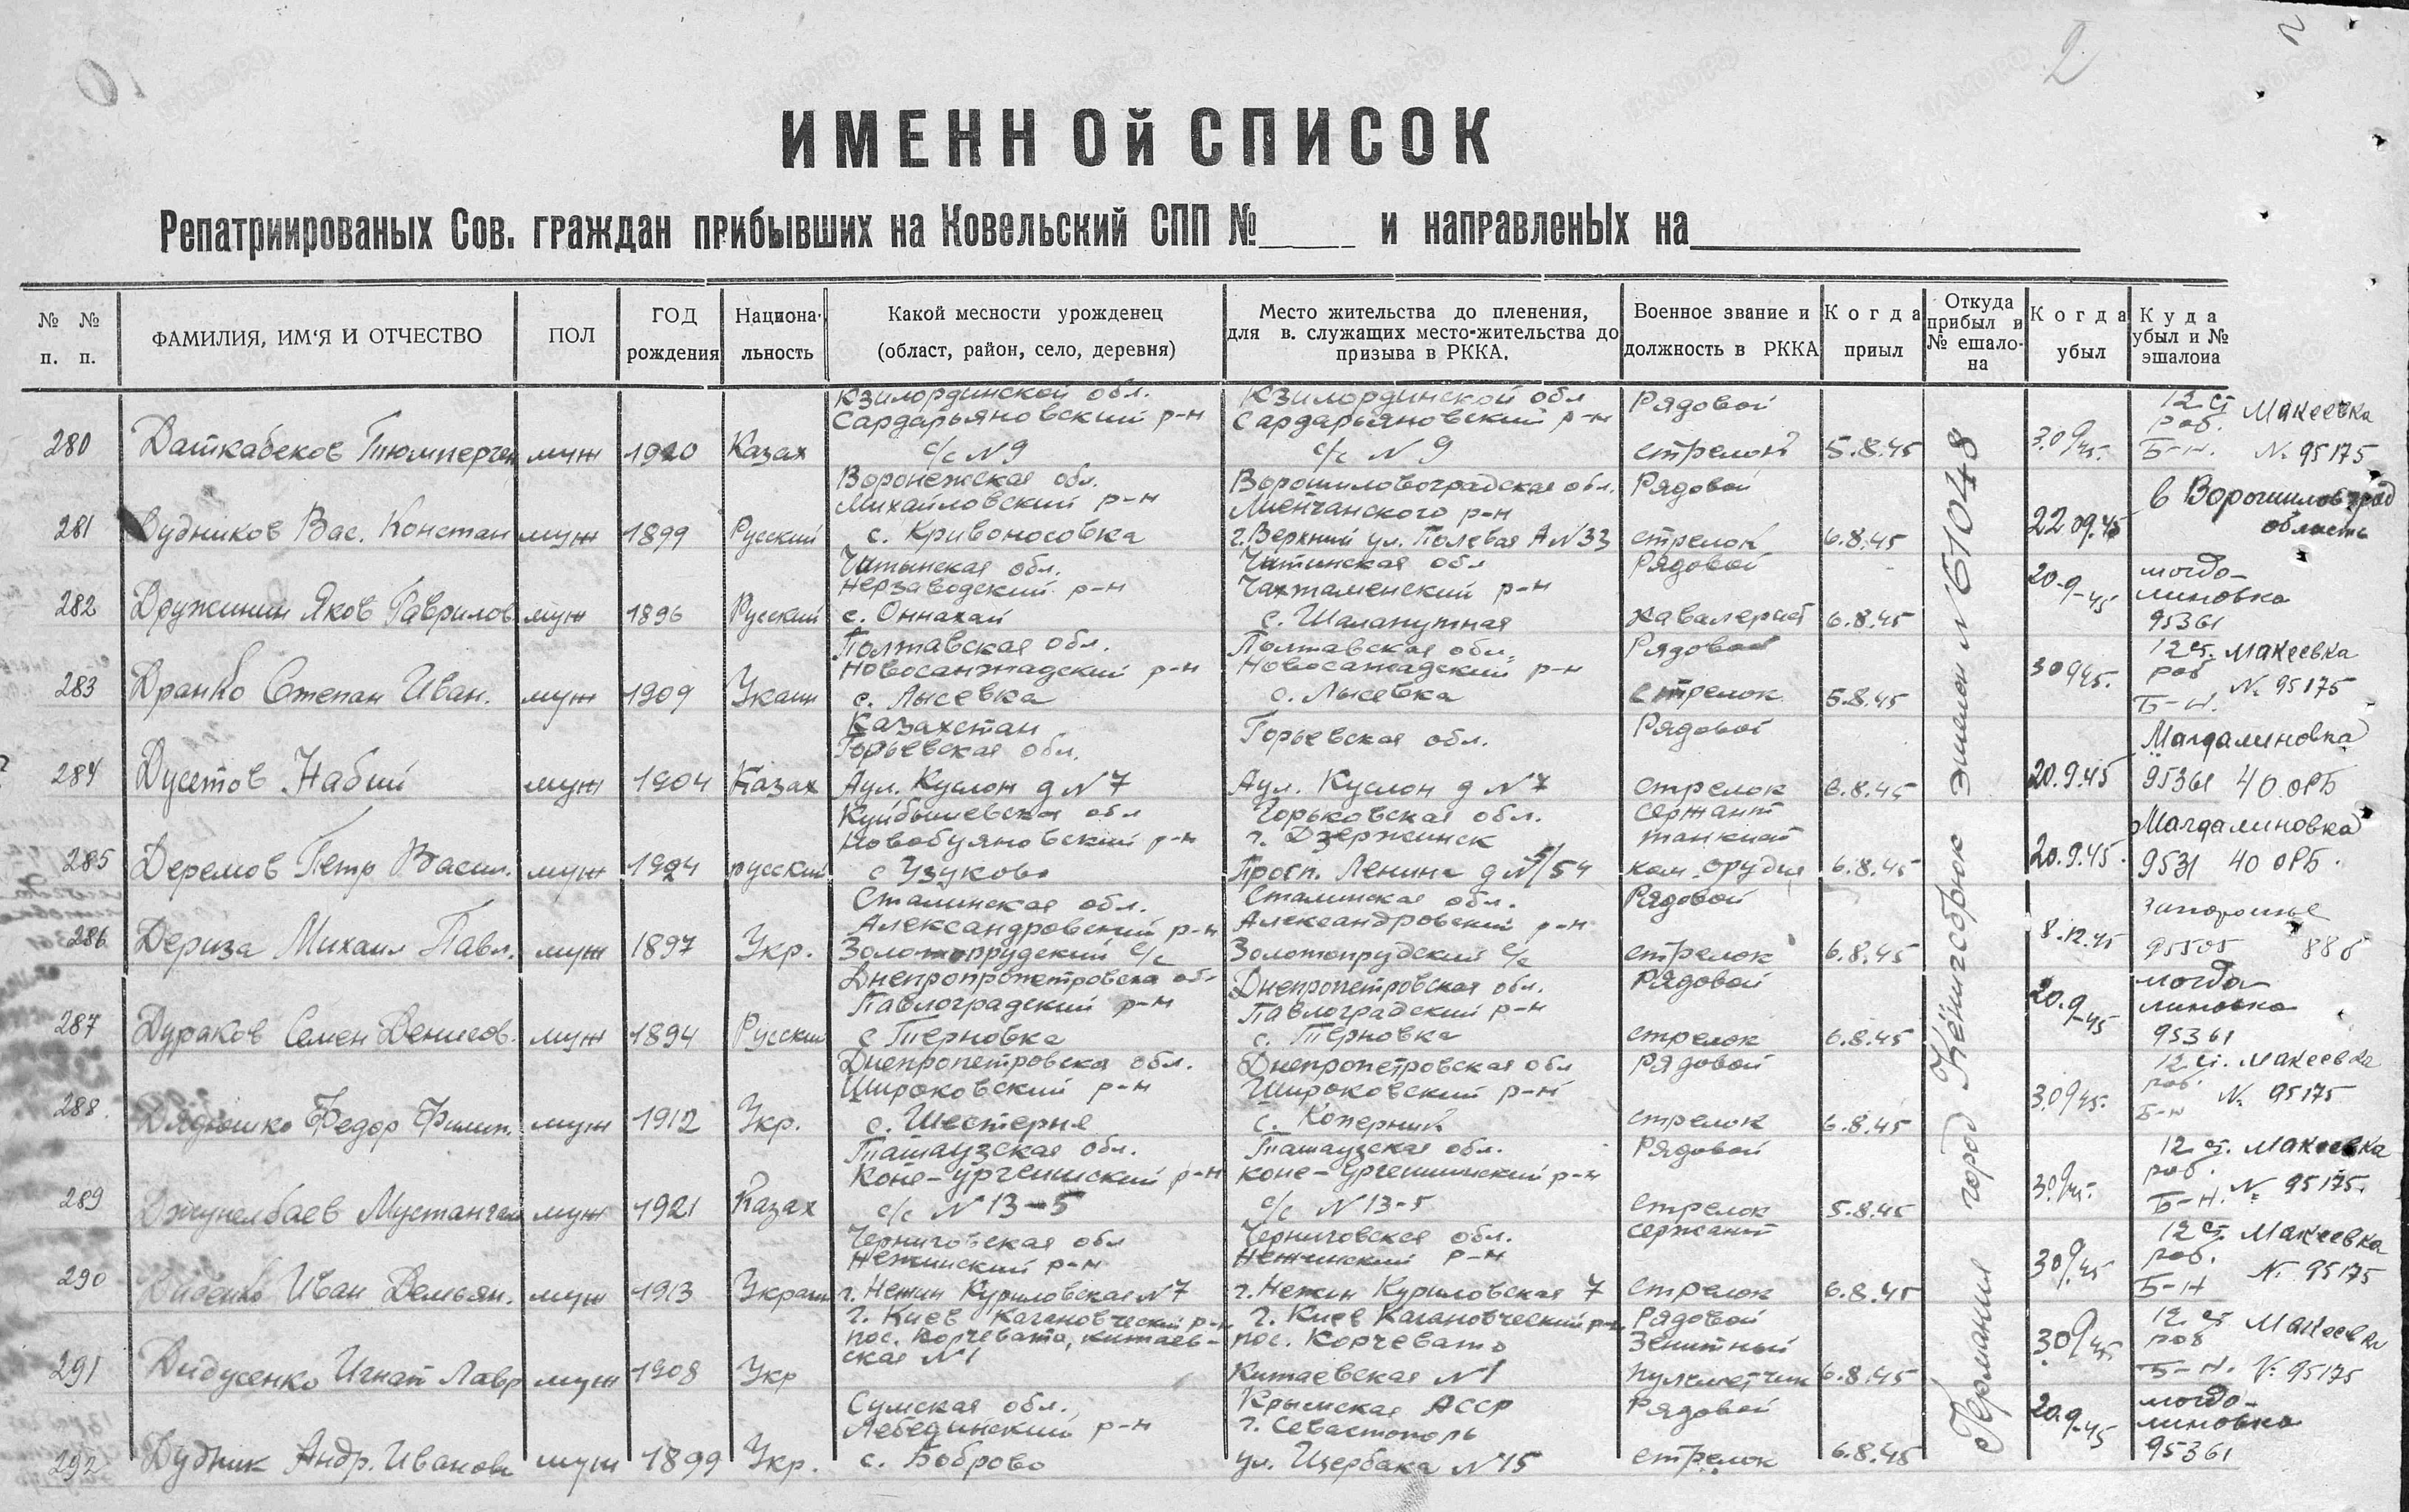 2
ИМЕННОй СПИСОК
Репатриированых Сов. граждан прибывших на Ковельский СПП №____ и направленЫх на____
№ № п. п.
ФАМИЛИЯ, ИМ'Я И ОТЧЕСТВО
ПОЛ
ГОД рождения
Национа- льность
Какой месности урожденец (област, район, село, деревня)
Место жительства до пленения, для в. служащих место-жительства до призыва в РККА.
Военное звание и должность в РККА
Когда приыл
Откуда прибыл и № ешало- на
Когда убыл
Куда убыл и № эшалона
Германия город Кёнигсбрюк эшелон №61048
Кзилординской обл. Кзилординской обл Рядовой 12 от Макеевка
Сардарьяновский р-н Сардарьяновский р-н раб.
280 Даткабеков муж 1920 Казах с/с №9 с/с №9 стрелок 5.8.45 30/9 45. Б-н. № 95175
Воронежская обл. Ворошиловоградская обл. Рядовой в Ворошиловград
Михайловский р-н р-н область
281 Дудников Вас. Констан муж 1899 Русский с. Кривоносовка г. Верхний ул. Полевая №33 стрелок 6.8.45 22.09.45
Читынская обл. Читинская обл Рядовой могдо-
Нерзаводский р-н Чахтаменский р-н линовка
282 Дружинин Яков Гаврилов. муж 1896 Русский с. Оннахай с. Шалапутная кавалерист 6.8.45 20.9-45 95361
Полтавская обл. Полтавская обл. Рядовой 12 от. Макеевка
Новосанжадский р-н Новосанжадский р-н раб
283 Дранко Степан Иван. муж 1909 Укаин с. Лысевка с. Лысевка стрелок 5.8.45 30/9 45. Б-н. № 95175
Казахстан Горьевская обл. Рядовой Магдалиновка
Горьевская обл.
284 Дусетов Набий муж 1904 Казах Аул. Куслон д №7 Аул. Куслон д №7 стрелок 6.8.45 20.9.45 95361 40 ОРБ
Куйбышевская обл Горьковская обл. сержант Магдалиновка
Новобуяновский р-н г. Дзержинск танкист
285 Деремов Петр Васил. муж русский с Узуково Просп. Ленина д № 54 ком. орудия 6.8.45 20.9.45. 9531 40 ОРБ.
Сталинская обл. Сталинская обл. Рядовой запорожье
Александровский р-н Александровский р-н
286 Дериза Михаил Павл. муж 1897 Укр. Золотопрудский с/с Золотопрудский с/с стрелок 6.8.45 8.12.45 95505 88б
Днепропропетровска обл Днепропетровская обл. Рядовой могдо-
Павлоградский р-н Павлоградский р-н линовка
287 Дураков Семен Денисов. муж 1894 Русский с Терновка с. Терновка стрелок 6.8.45 20.9-45 95361
Днепропетровска обл. Днепропетровская обл Рядовой 12 от. Макеевка
Широковский р-н Широковский р-н раб.
288. Дядюшко Федор Филип. муж 1912 Укр. с. Шестерня с. Коперник стрелок 6.8.45 30/9 45. Б-н № 95175
Ташаузская обл. Ташаузская обл. Рядовой 12 от. Макеевка
Коне-Ургенишский р-н коне-Ургенишинский р-н раб.
289 Джунелбаев муж 1921 Казах с/с №13-5 с/с №13-5 стрелок 5.8.45 30/9 45. Б-н. № 95175.
Черниговская обл Черниговская обл. сержант 12 от Макеевка
Нежинский р-н Нежинский р-н раб.
290 Диденко Иван Демьян. муж 1913 Украин г. Нежин Куриловская №7 г. Нежин Куриловская 7 стрелок 6.8.45 30/9 45 Б-н № 95175
г. Киев Кагановческий р-н г. Киев Кагановческий р-н Рядовой 12 от Макеевка
пос. Корчевато, китаев- пос. Корчевато Зенитный раб
ская №1
291 Дидусенко Игнат Лавр муж 1908 Укр Китаевская №1 пулеметчик 6.8.45 30/9 45 Б-н. № 95175
Сумская обл. Крымская АССР Рядовой могдо-
Лебединский р-н г. Севастополь линовка
292 Дудник Андр. Иванов муж 1899 Укр. с. Боброво ул. Щербака №15 стрелок 6.8.45 20.9-45 95361